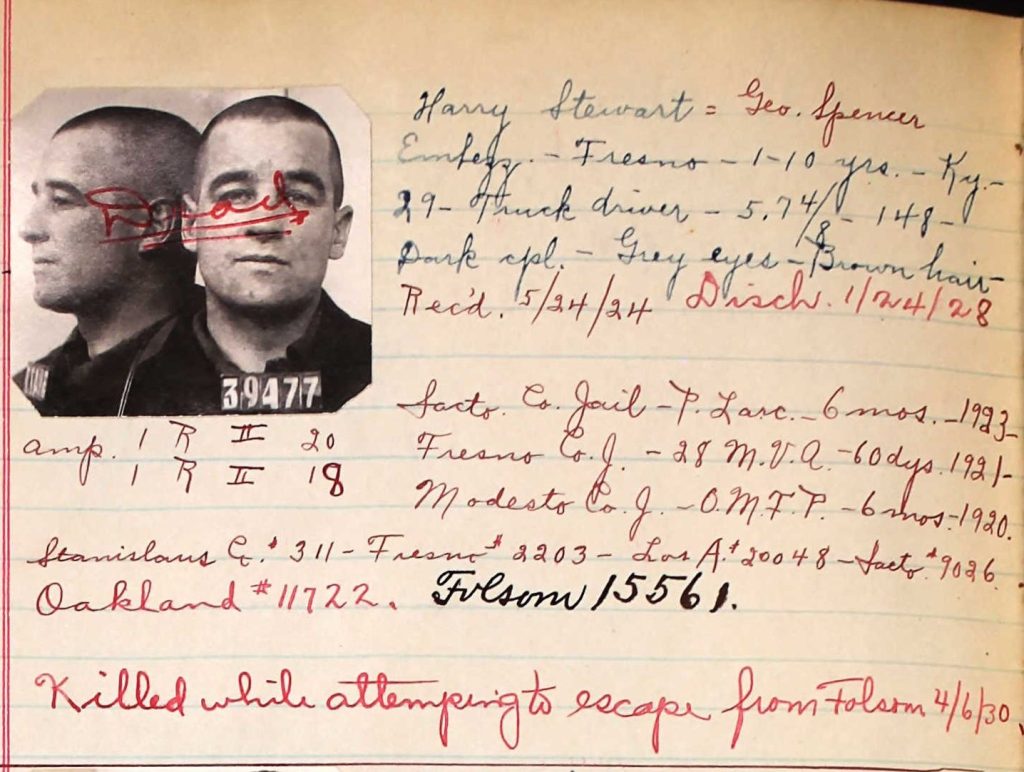 Harry Stewart = Geo. Spencer
Embezz. - Fresno - 1-10 yrs. - Ky. -
29 - Truck driver - 5.7 4/8 - 148 -
Dark cpl. - Grey eyes - Brown hair -
Rec'd. 5/24/24 Disch. 1/24/28
Dead
39477
amp. 1 R II 20
1 R II 18
Sacto. Co. Jail - P. Larc. - 6 mos. - 1923 -
Fresno Co. J. - 28 M.V.A. - 60 dys. 1921 -
Modesto Co. J. - O.M.F.P. - 6 mos. - 1920.
Stanislaus C. # 311 - Fresno # 2203 - Los A. # 20048 - Sacto. # 9026
Oakland # 11722. Folsom 15561.
Killed while attemping to escape from Folsom 4/6/30